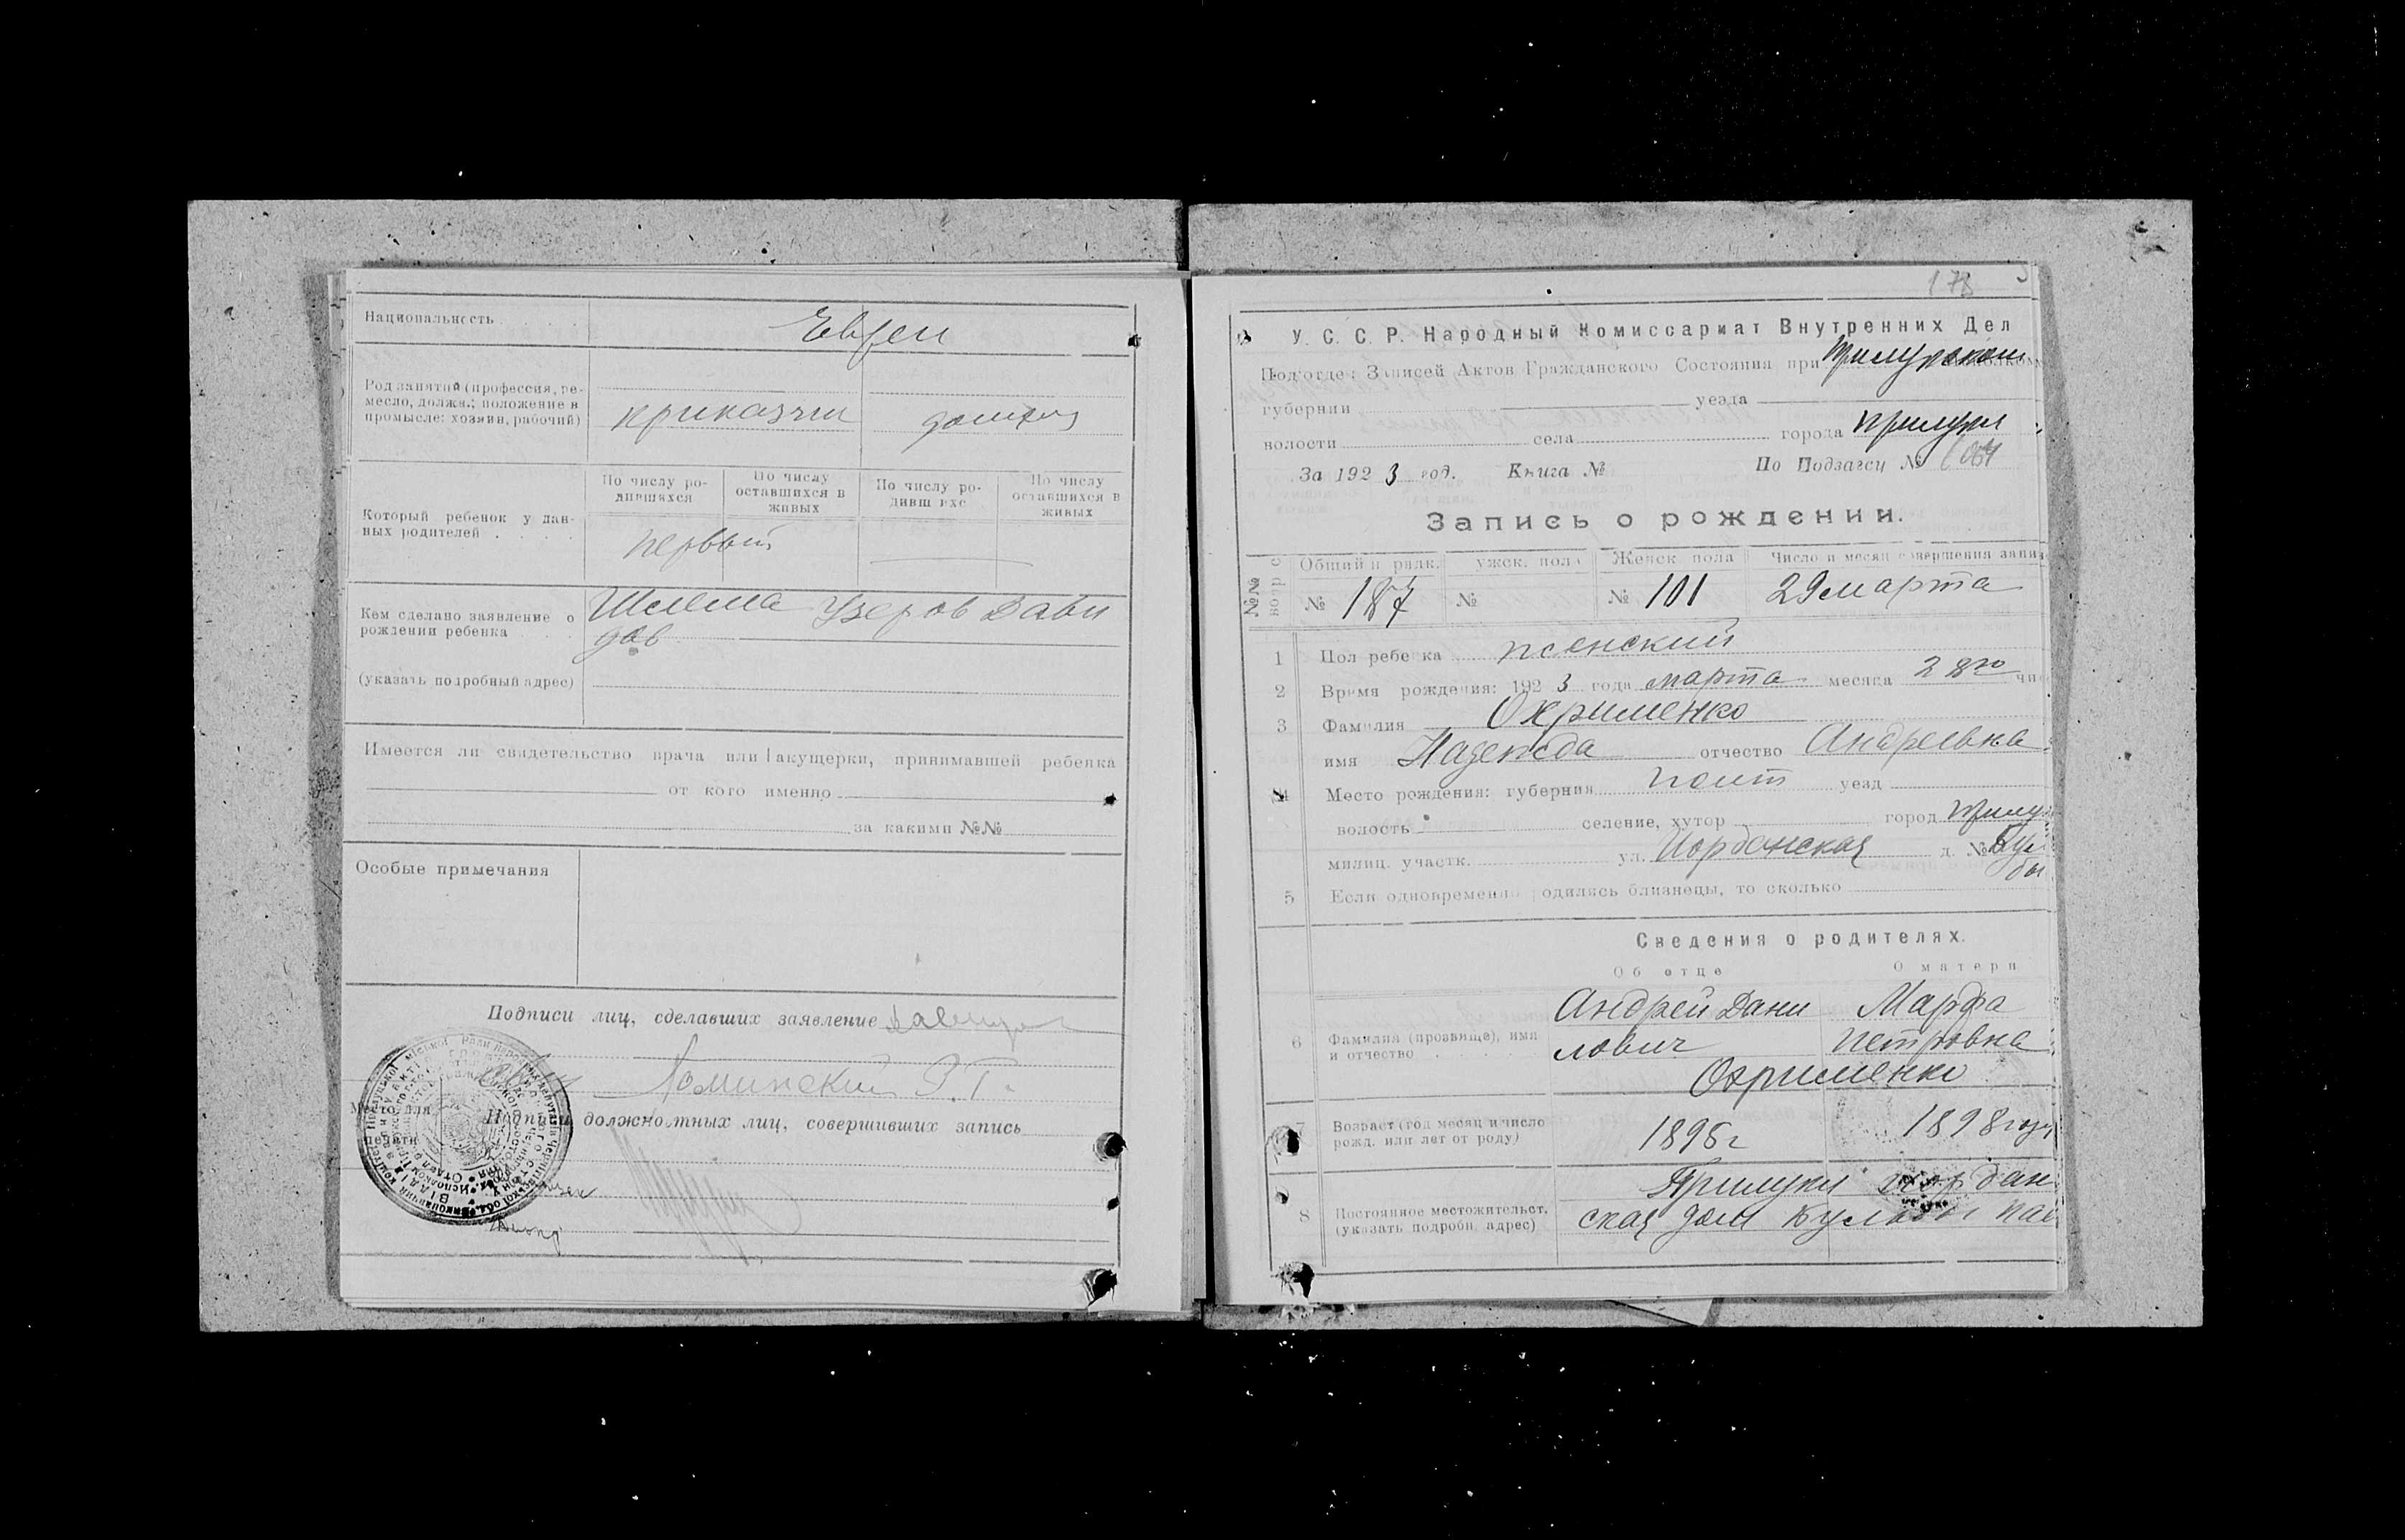 Национальность
Евреи
Род занятий (профессия, ре-
месло, должн.; положение в
промысле: хозяин, рабочий)
приказчи
домхоз
По числу ро-
дившихся
По числу
оставшихся в
живых
По числу ро-
дивш ихс
По числу
оставшихся в
живых
Который ребенок у дан-
ных родителей
первый
Кем сделано заявление о
рождении ребенка
Шлема Узеров Дави
дов
(указать подробный адрес)
Имеется ли свидетельство врача или акушерки, принимавшей ребенка
от кого именно
за какими №№
Особые примечания
Подписи лиц, сделавших заявление
Ломинский
Место для
печати
Подписи должностных лиц, совершивших запись
178
У. С. С. Р. Народный Комиссариат Внутренних Дел
Подотдел Записей Актов Гражданского Состояния при Прилукском
губернии уезда
волости села города Прилуки
За 1923 год. Книга № По Подзагсу №
Запись о рождении.
№№
Общий и рядк. ужск. пола Женск пола Число и месяц совершения запи
№ 187 № № 101 29 марта
1 Пол ребе ка женский
2 Время рождения: 1923 года марта месяца 28го чи
3 Фамилия Охрименко
имя Надежда отчество Андреевна
4 Место рождения: губерния Полт уезд
волость селение, хутор город Прилу
милиц. участк. ул. Иорданская д. № Куль
бы
5 Если одновременно родились близнецы, то сколько
Сведения о родителях.
Об отце О матери
6 Фамилия (прозвище), имя
и отчество
Андрей Дани
лович
Марфа
Петровна
Охрименко
7 Возраст (год месяц и число
рожд. или лет от роду)
1896 г
1898 году
8 Постоянное местожительст.
(указать подробн. адрес)
Прилуки Иордан
ская дом Кульбы